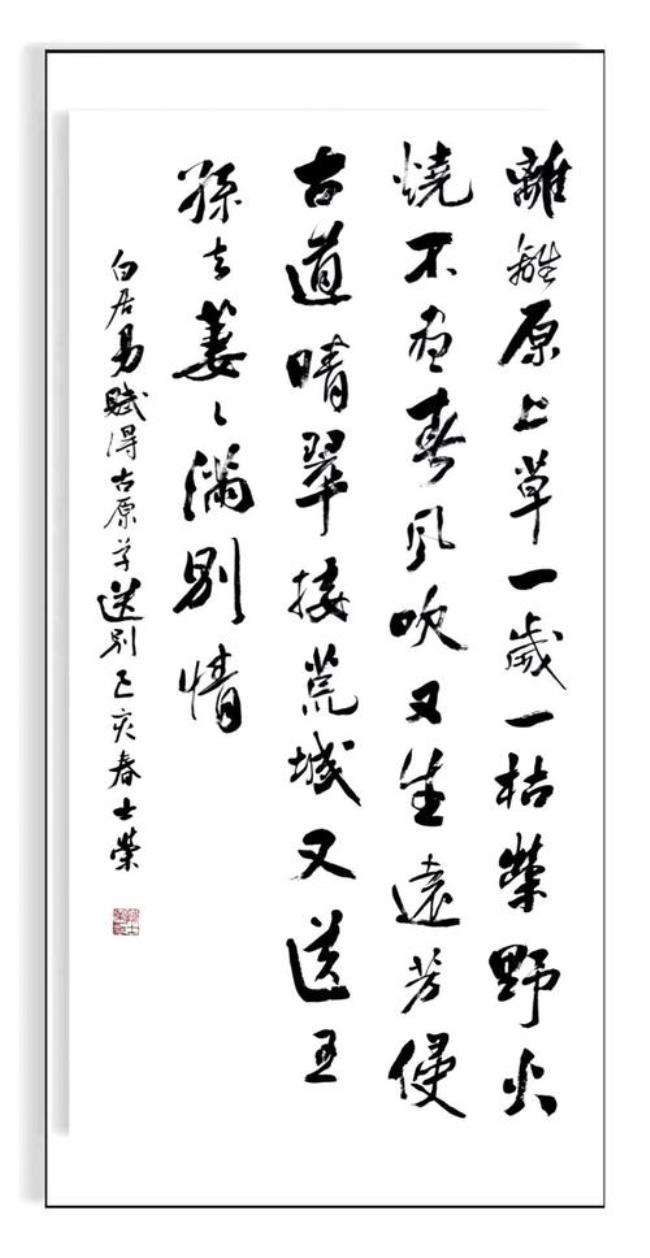 離離原上草一歲一枯榮野火
燒不盡春風吹又生遠芳侵
古道晴翠接荒城又送王
孫去萋々滿別情
白居易賦得古原草送別己亥春士榮